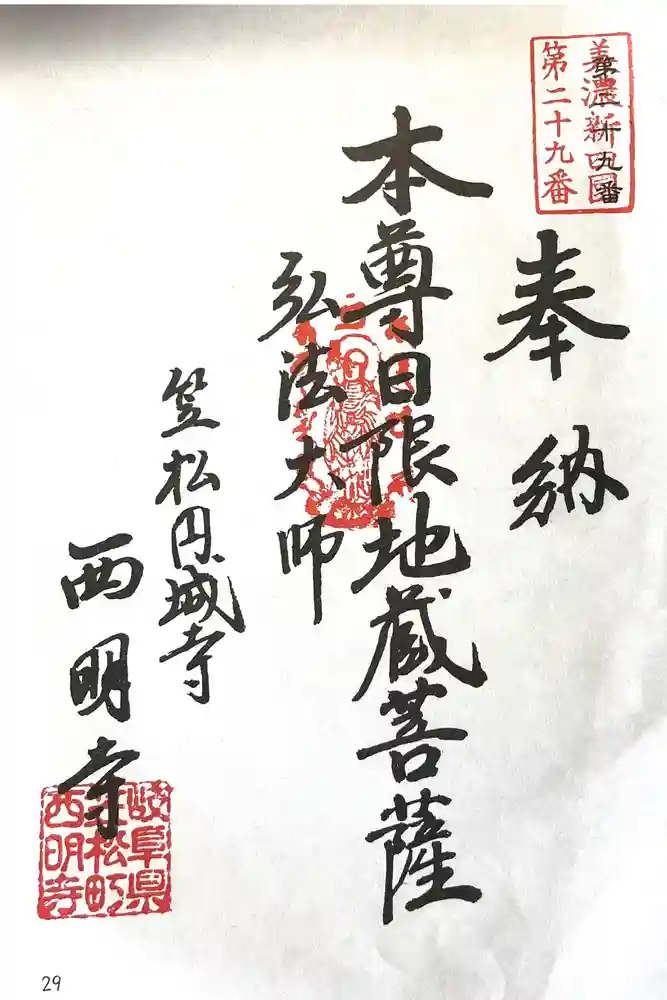 美濃新四国
第二十九番
第二十九番
奉納
本尊日限地蔵菩薩
弘法大師
笠松円城寺
西明寺
岐阜県
笠松町
西明寺
29